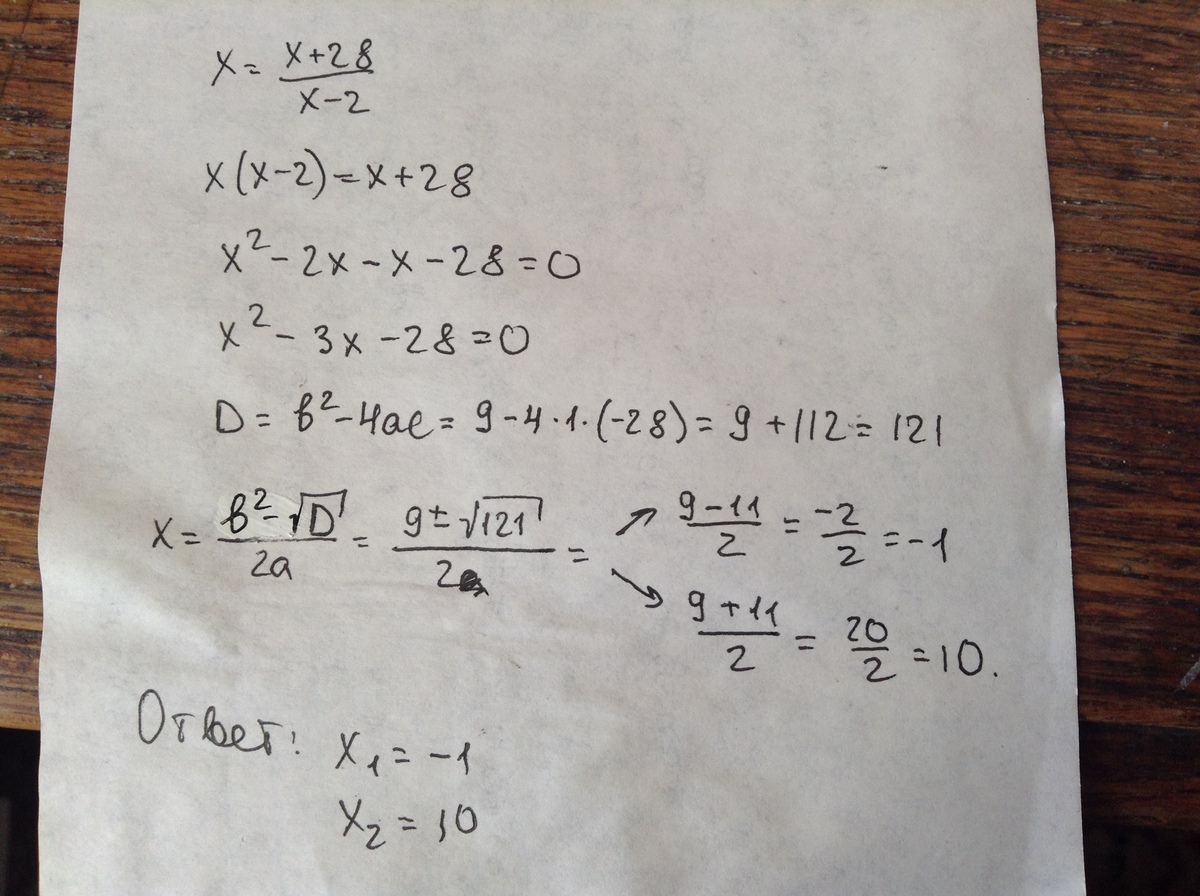 x = x+28 / x-2
x(x-2) = x+28
x² - 2x - x - 28 = 0
x² - 3x - 28 = 0
D = в² - 4ac = 9 - 4·1·(-28) = 9 + 112 = 121
x = в² - √D / 2a = 9 ± √121 / 2 = ↗ 9-11 / 2 = -2 / 2 = -1
↘ 9+11 / 2 = 20 / 2 = 10.
Ответ: x₁ = -1
x₂ = 10